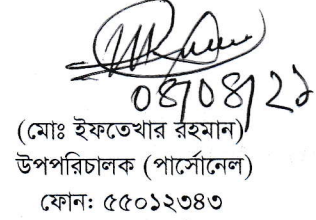 ০৪/০৪/২১
(মোঃ ইফতেখার রহমান)
উপপরিচালক (পার্সোনেল)
ফোন: ৫৫০১২৩৪৩